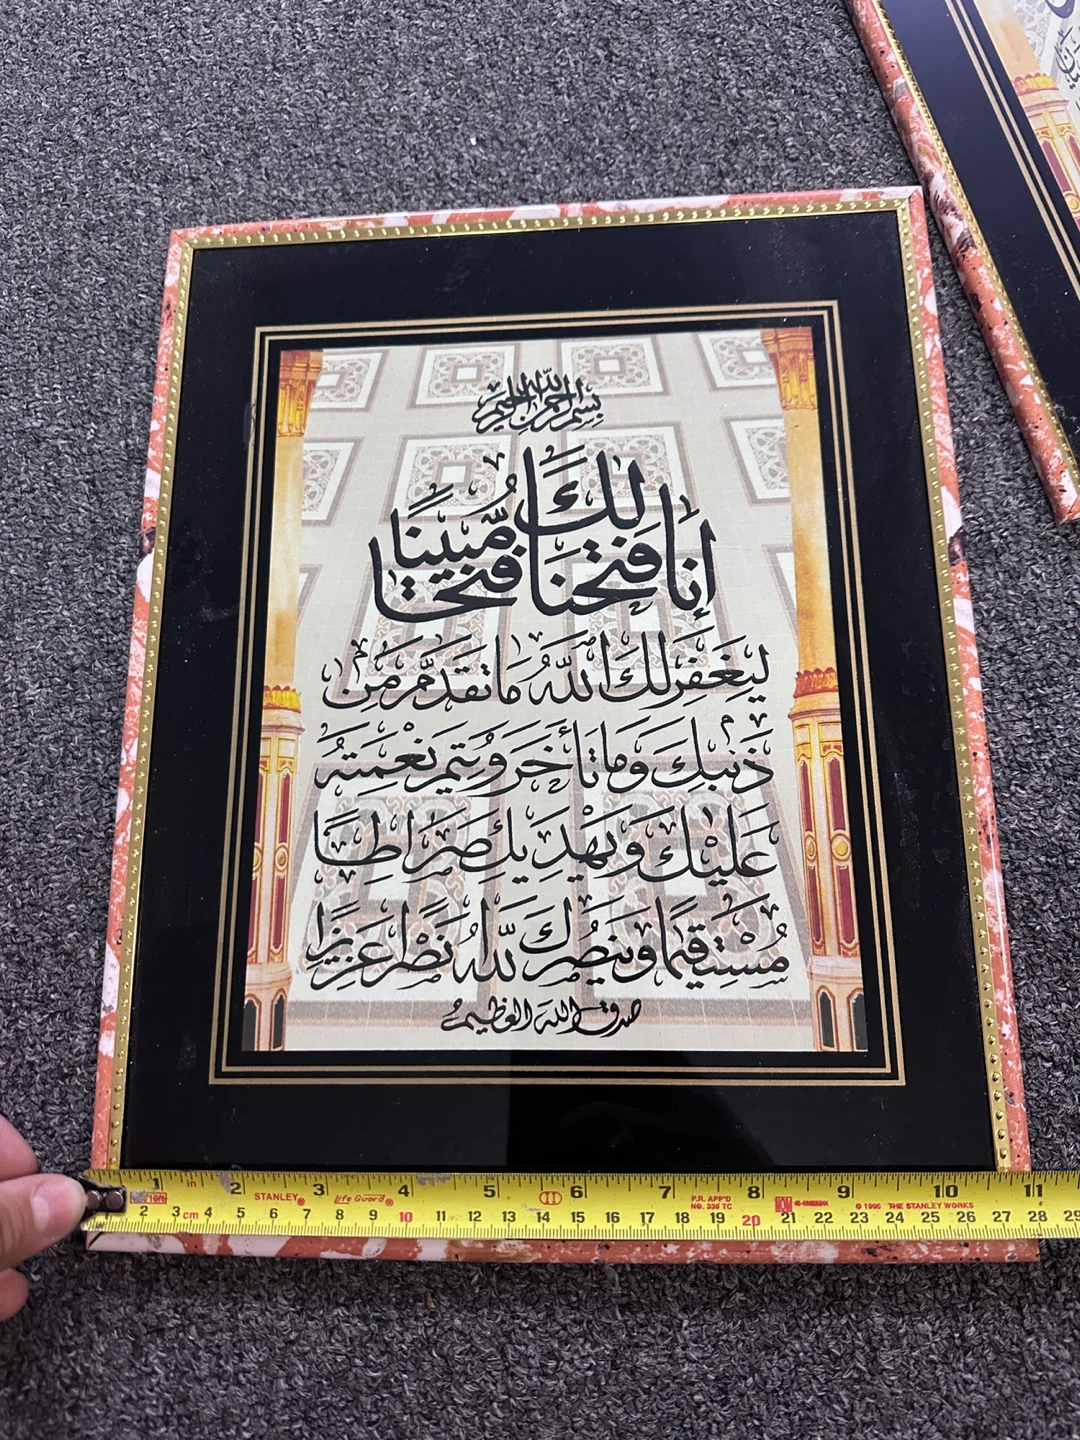 بسم الله الرحمن الرحيم
إنا فتحنا لك فتحا مبينا
ليغفر لك الله ما تقدم من
ذنبك وما تأخر ويتم نعمته
عليك ويهديك صراطا
مستقيما وينصرك الله نصرا عزيزا
صدق الله العظيم
1 in 2 STANLEY® 3 Life Guard® 4 5 6 7 P.R. APP'D NO. 335 TC 8 9 © 1995 THE STANLEY WORKS 10 11
2 3 cm 4 5 6 7 8 9 10 11 12 13 14 15 16 17 18 19 20 21 22 23 24 25 26 27 28 29